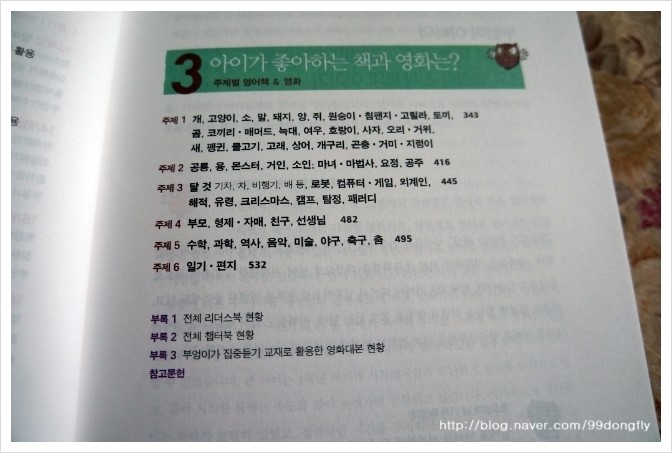 활용
용
3 아이가 좋아하는 책과 영화는?
주제별 영어책 & 영화
주제 1 개, 고양이, 소, 말, 돼지, 양, 쥐, 원숭이·침팬지·고릴라, 토끼, 343
곰, 코끼리·매머드, 늑대, 여우, 호랑이, 사자, 오리·거위,
새, 펭귄, 물고기, 고래, 상어, 개구리, 곤충·거미·지렁이
주제 2 공룡, 용, 몬스터, 거인, 소인, 마녀·마법사, 요정, 공주 416
주제 3 탈 것 기차, 차, 비행기, 배 등, 로봇, 컴퓨터·게임, 외계인, 445
해적, 유령, 크리스마스, 캠프, 탐정, 패러디
주제 4 부모, 형제·자매, 친구, 선생님 482
주제 5 수학, 과학, 역사, 음악, 미술, 야구, 축구, 춤 495
주제 6 일기·편지 532
부록 1 전체 리더스북 현황
부록 2 전체 챕터북 현황
부록 3 부엉이가 집중듣기 교재로 활용한 영화대본 현황
참고문헌
http://blog.naver.com/99dongfly